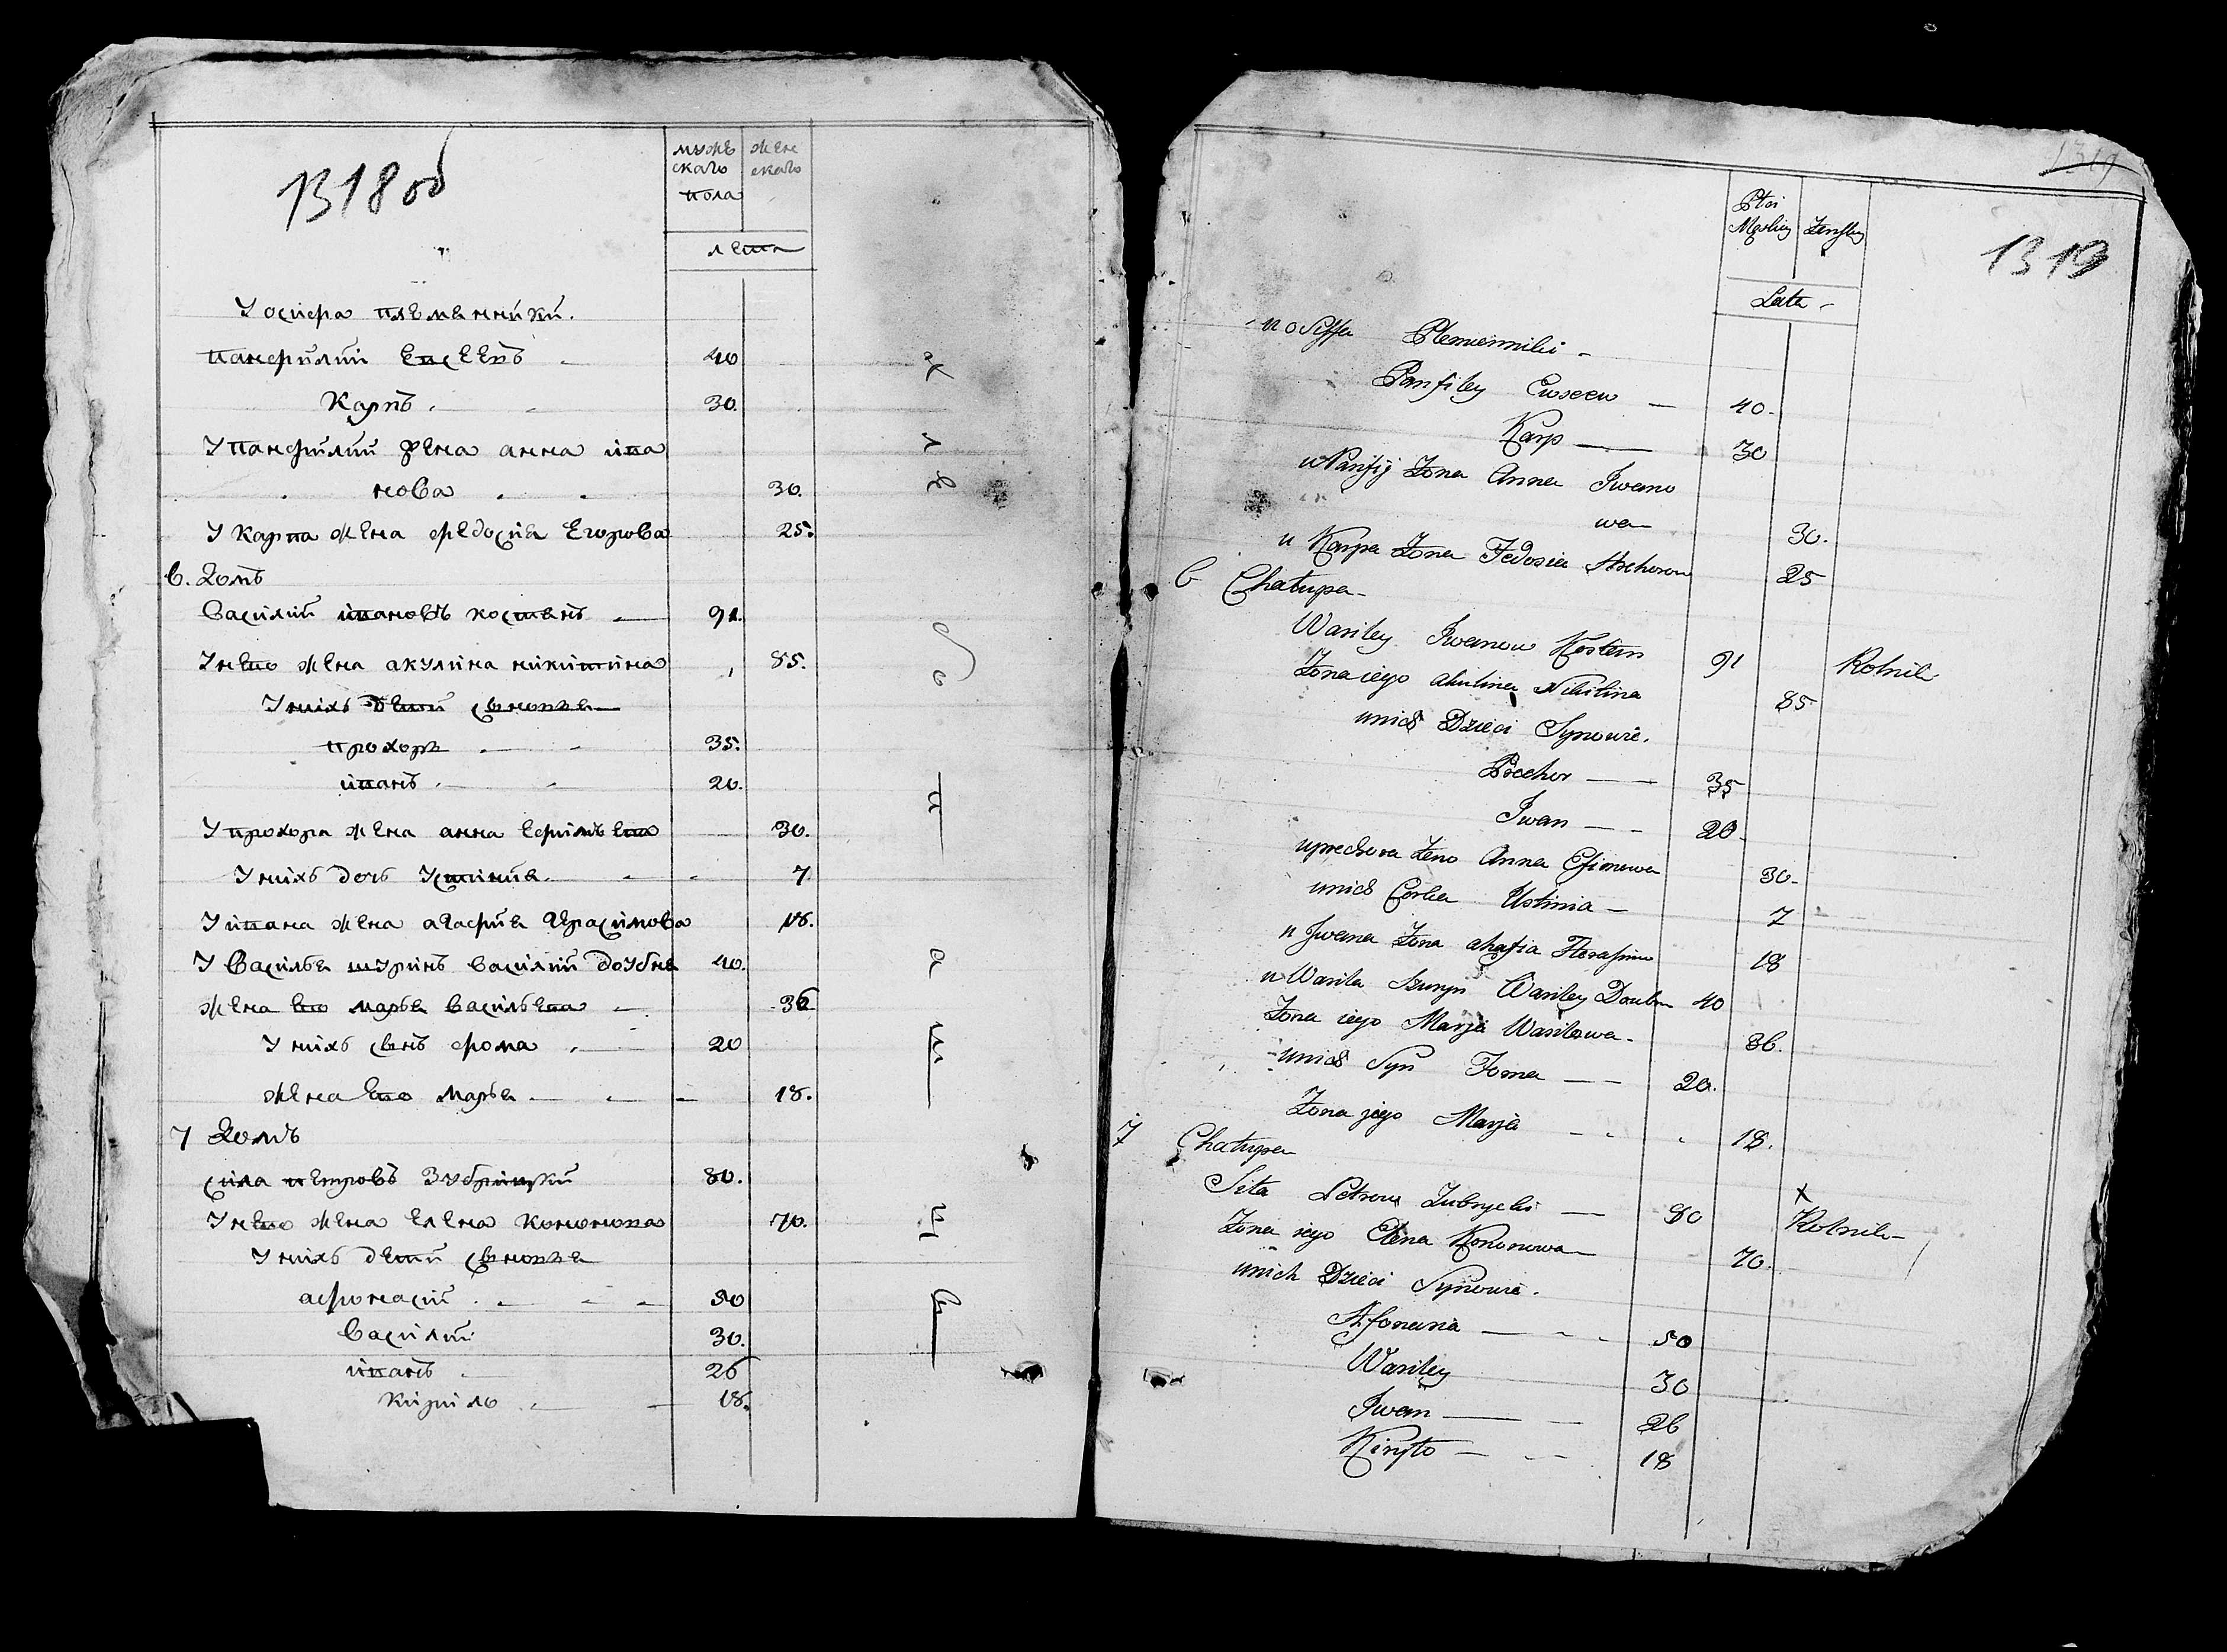 1318 об
мужескаго пола
женскаго
лета
У осифа племянники.
панфилий Евсеевъ 40
Карпъ 30.
У панфилия жена анна ива
нова 30.
У карпа жена федосия Егорова 25.
6. Домъ
Василий ивановъ костянъ 91.
У него жена акулина никитина 85.
У нихъ детей сыновья
прохоръ 35.
иванъ 20.
У прохора жена анна ефимова 30.
У нихъ дочь Устиния 7
У ивана жена агафия Герасимова 18.
У Василья шуринъ Василий доубня 40.
жена его марья Васильева 36
У нихъ сынъ фома 20
жена его марья 18.
7 Домъ
сила петровъ Зубрицкий 80.
У него жена Елена кононова 70.
У нихъ детей сыновья
афонасий 50
Василий 30.
иванъ 26
кирило 18.
1319
Płci Męskiey Żeńskiey
Lata
u osiffa Plemienniki
Panfiley Ewseew 40
Karp 30
u Panfiy Żona Anna Iwano
wa 30.
u Karpa Żona Fedosia 25
6 Chałupa
Wasiley Iwanow Kosten 91 Rolnik
Żona iego akulina Nikitina 85
u nich Dzieci Synowie.
Prochor 35
Iwan 20
u prochora Żena Anna Efimowa 30
u nich Corka Ustinia 7
u Iwana Żona ahafia Herasimo 18
u Wasila Szuryn Wasiley Doubn 40
Żona iego Marja Wasilowa 36.
u nich Syn Foma 20.
Żona jego Marja 18.
7 Chałupa
Siła Petrow Zubrycki 80 Rolnik
Żona iego Elena Kononowa 70.
u nich Dzieci Synowie.
Afonasia 50
Wasiley 30
Iwan 26
Kiryło 18